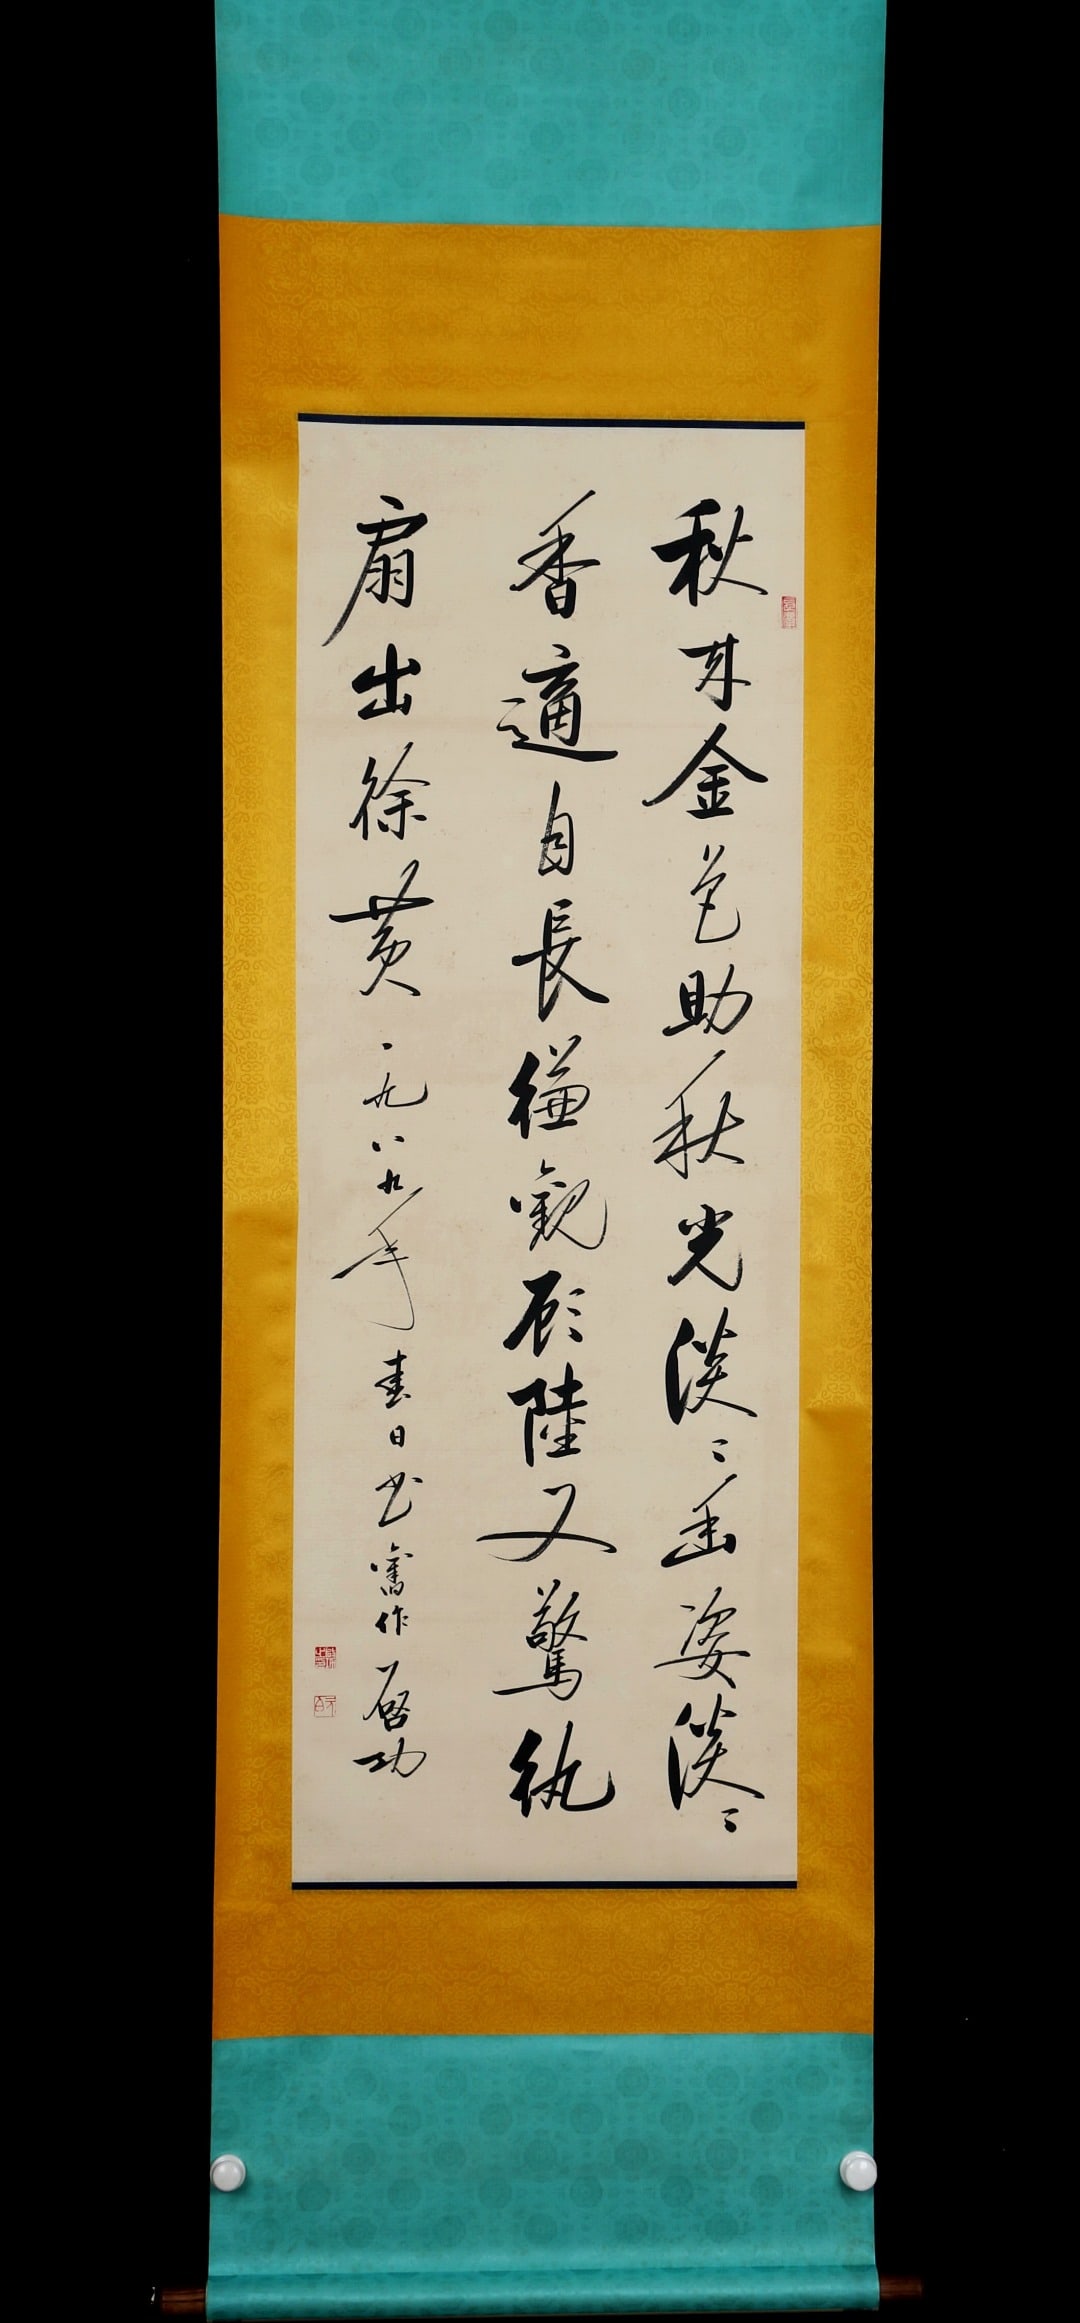 秋来金色助秋光淡〻幽姿淡〻
香適自長縑觀顧陸又驚紈
扇出徐黄一九八九年春日書舊作啓功